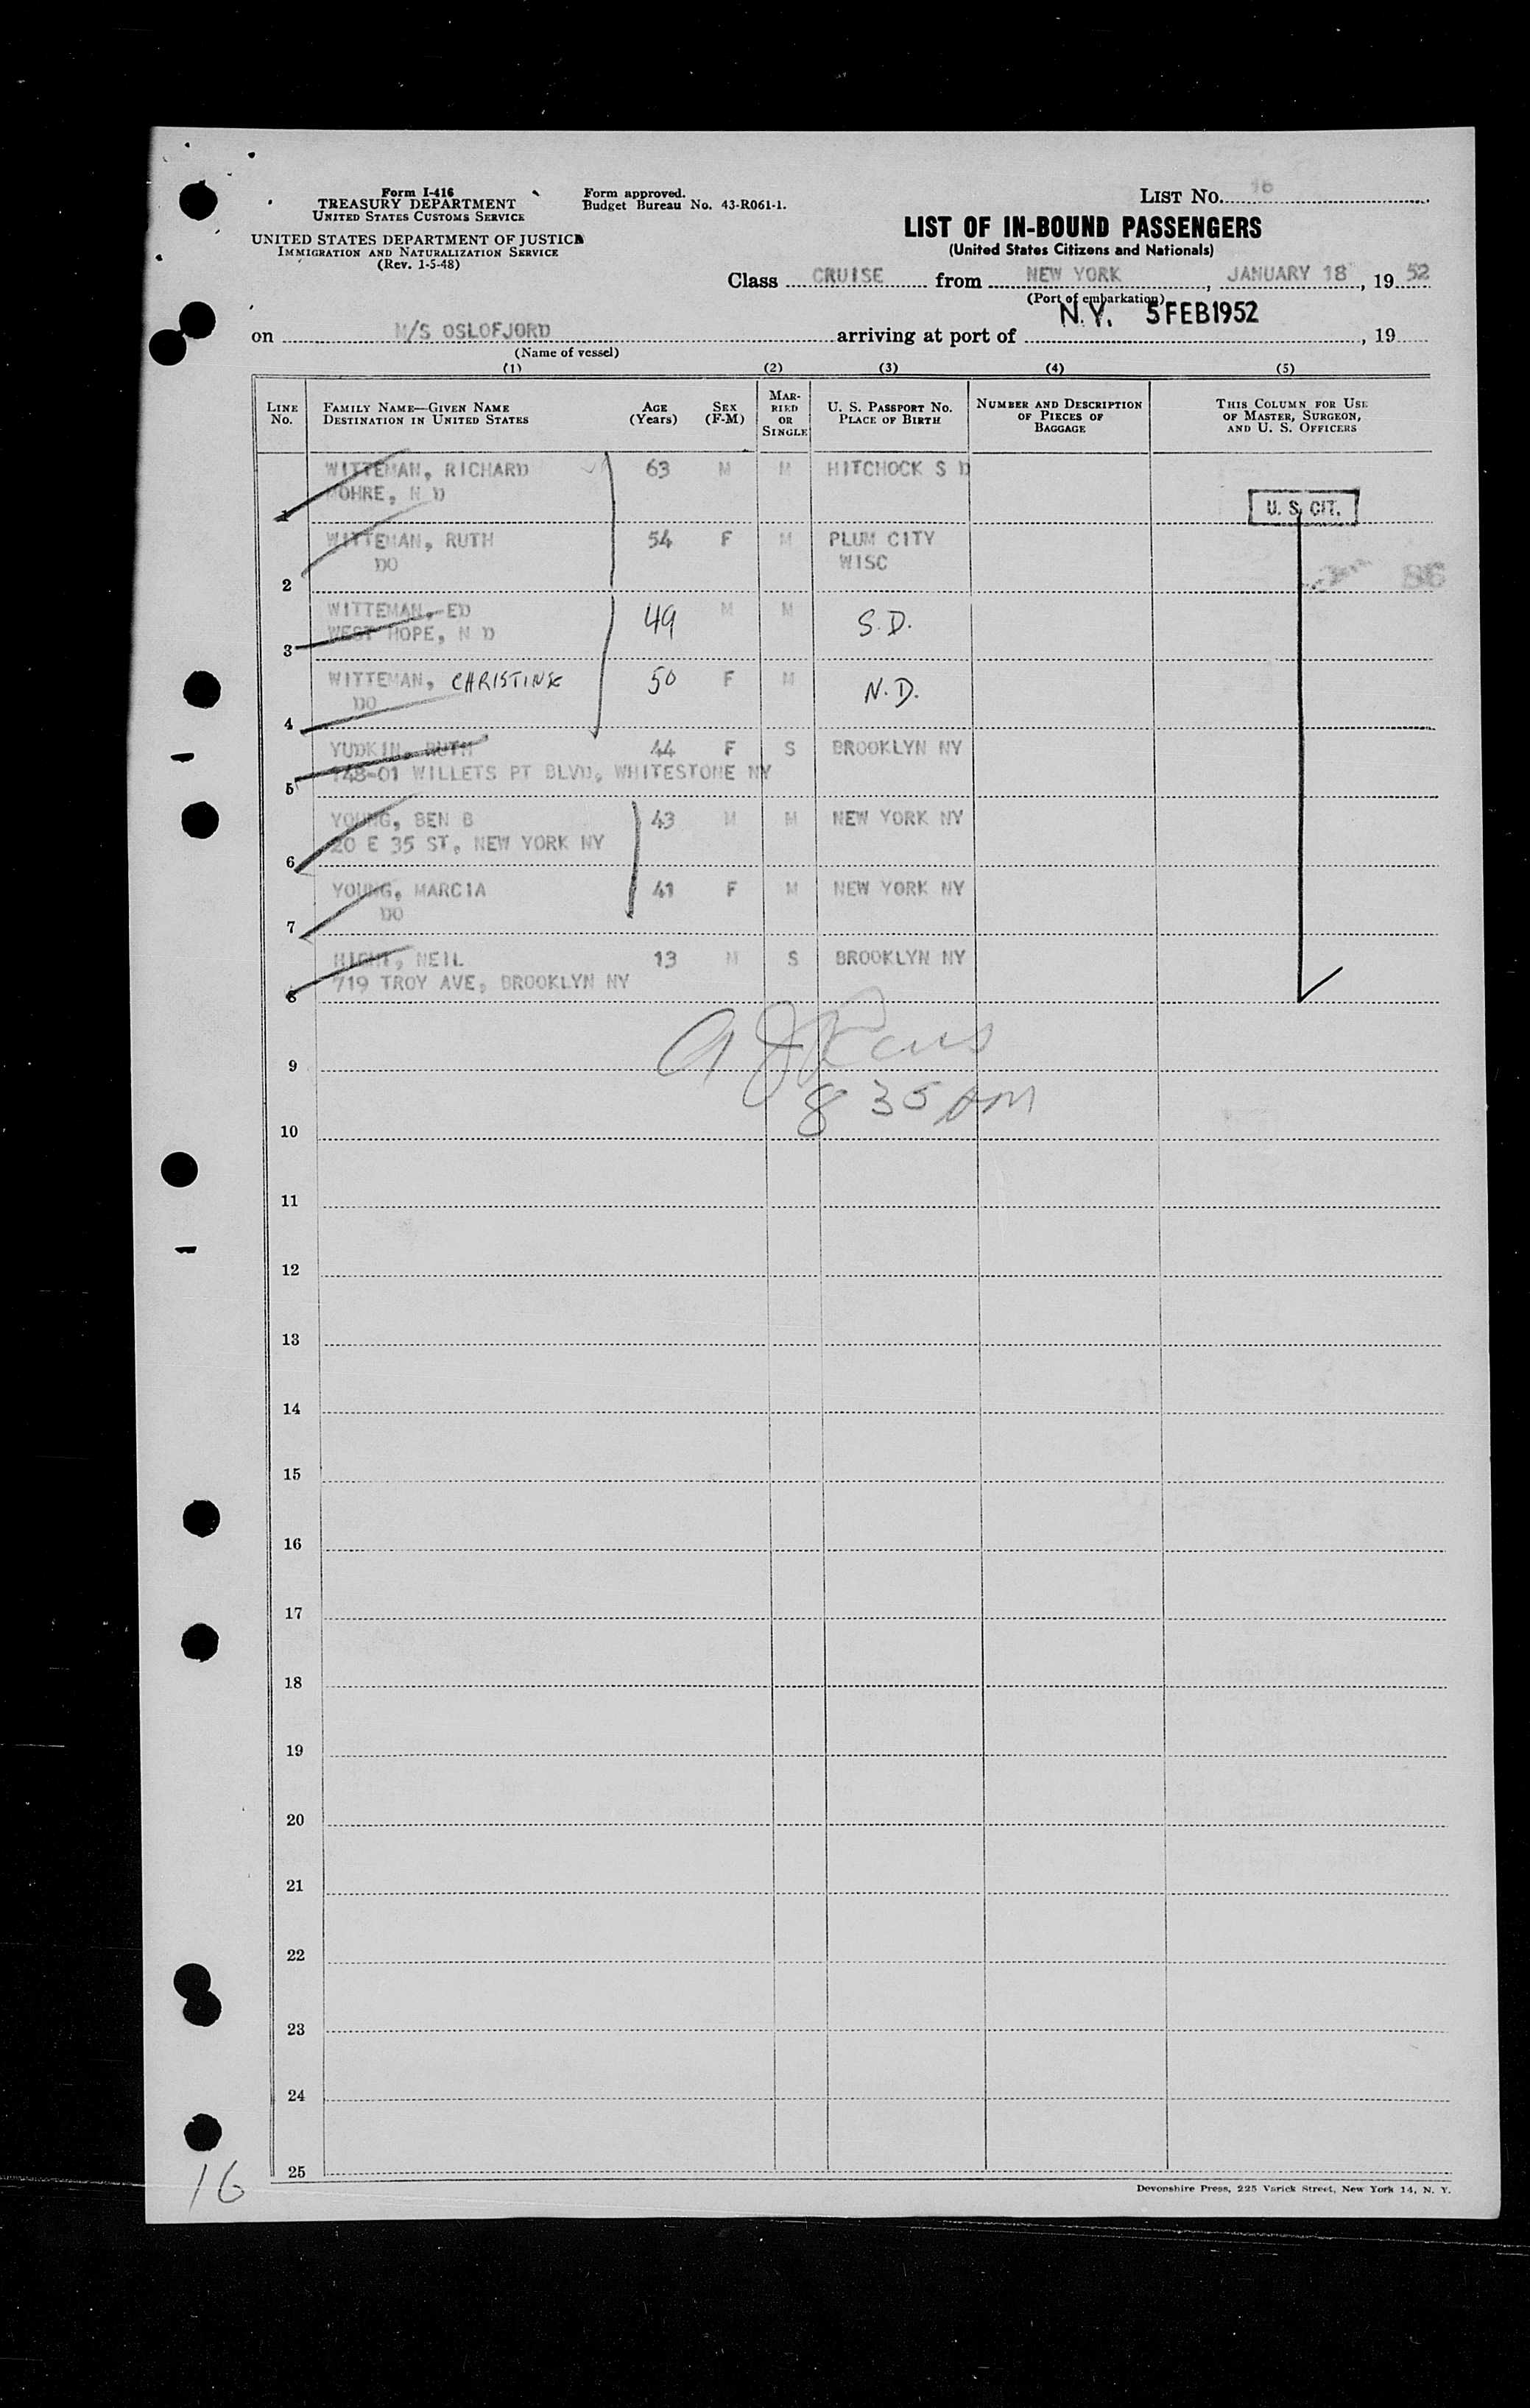 Form I-416
TREASURY DEPARTMENT
UNITED STATES CUSTOMS SERVICE
UNITED STATES DEPARTMENT OF JUSTICE
IMMIGRATION AND NATURALIZATION SERVICE
(Rev. 1-5-48)
Form approved.
Budget Bureau No. 43-R061-1.
LIST No. 16
LIST OF IN-BOUND PASSENGERS
(United States Citizens and Nationals)
Class CRUISE from NEW YORK, JANUARY 18, 1952
(Port of embarkation)
on M/S OSLOFJORD arriving at port of N.Y. 5 FEB 1952, 19
(Name of vessel)
(1) (2) (3) (4) (5)
LINE No. FAMILY NAME—GIVEN NAME DESTINATION IN UNITED STATES AGE (Years) SEX (F-M) MARRIED OR SINGLE U. S. PASSPORT No. PLACE OF BIRTH NUMBER AND DESCRIPTION OF PIECES OF BAGGAGE THIS COLUMN FOR USE OF MASTER, SURGEON, AND U. S. OFFICERS
WITTEMAN, RICHARD 63 M M HITCHOCK S D
1 MOHRE, N D U. S. CIT.
WITTEMAN, RUTH 54 F M PLUM CITY
DO WISC
2 86
WITTEMAN, ED 49 M M S.D.
3 WEST HOPE, N D
WITTEMAN, CHRISTINE 50 F M N.D.
4 DO
YUDKIN, RUTH 44 F S BROOKLYN NY
5 148-01 WILLETS PT BLVD, WHITESTONE NY
YOUNG, BEN B 43 M M NEW YORK NY
6 20 E 35 ST, NEW YORK NY
YOUNG, MARCIA 41 F M NEW YORK NY
7 DO
NEIL 13 M S BROOKLYN NY
8 719 TROY AVE, BROOKLYN NY
9
8 35 AM
10
11
12
13
14
15
16
17
18
19
20
21
22
23
24
25
16
Devonshire Press, 225 Varick Street, New York 14, N. Y.